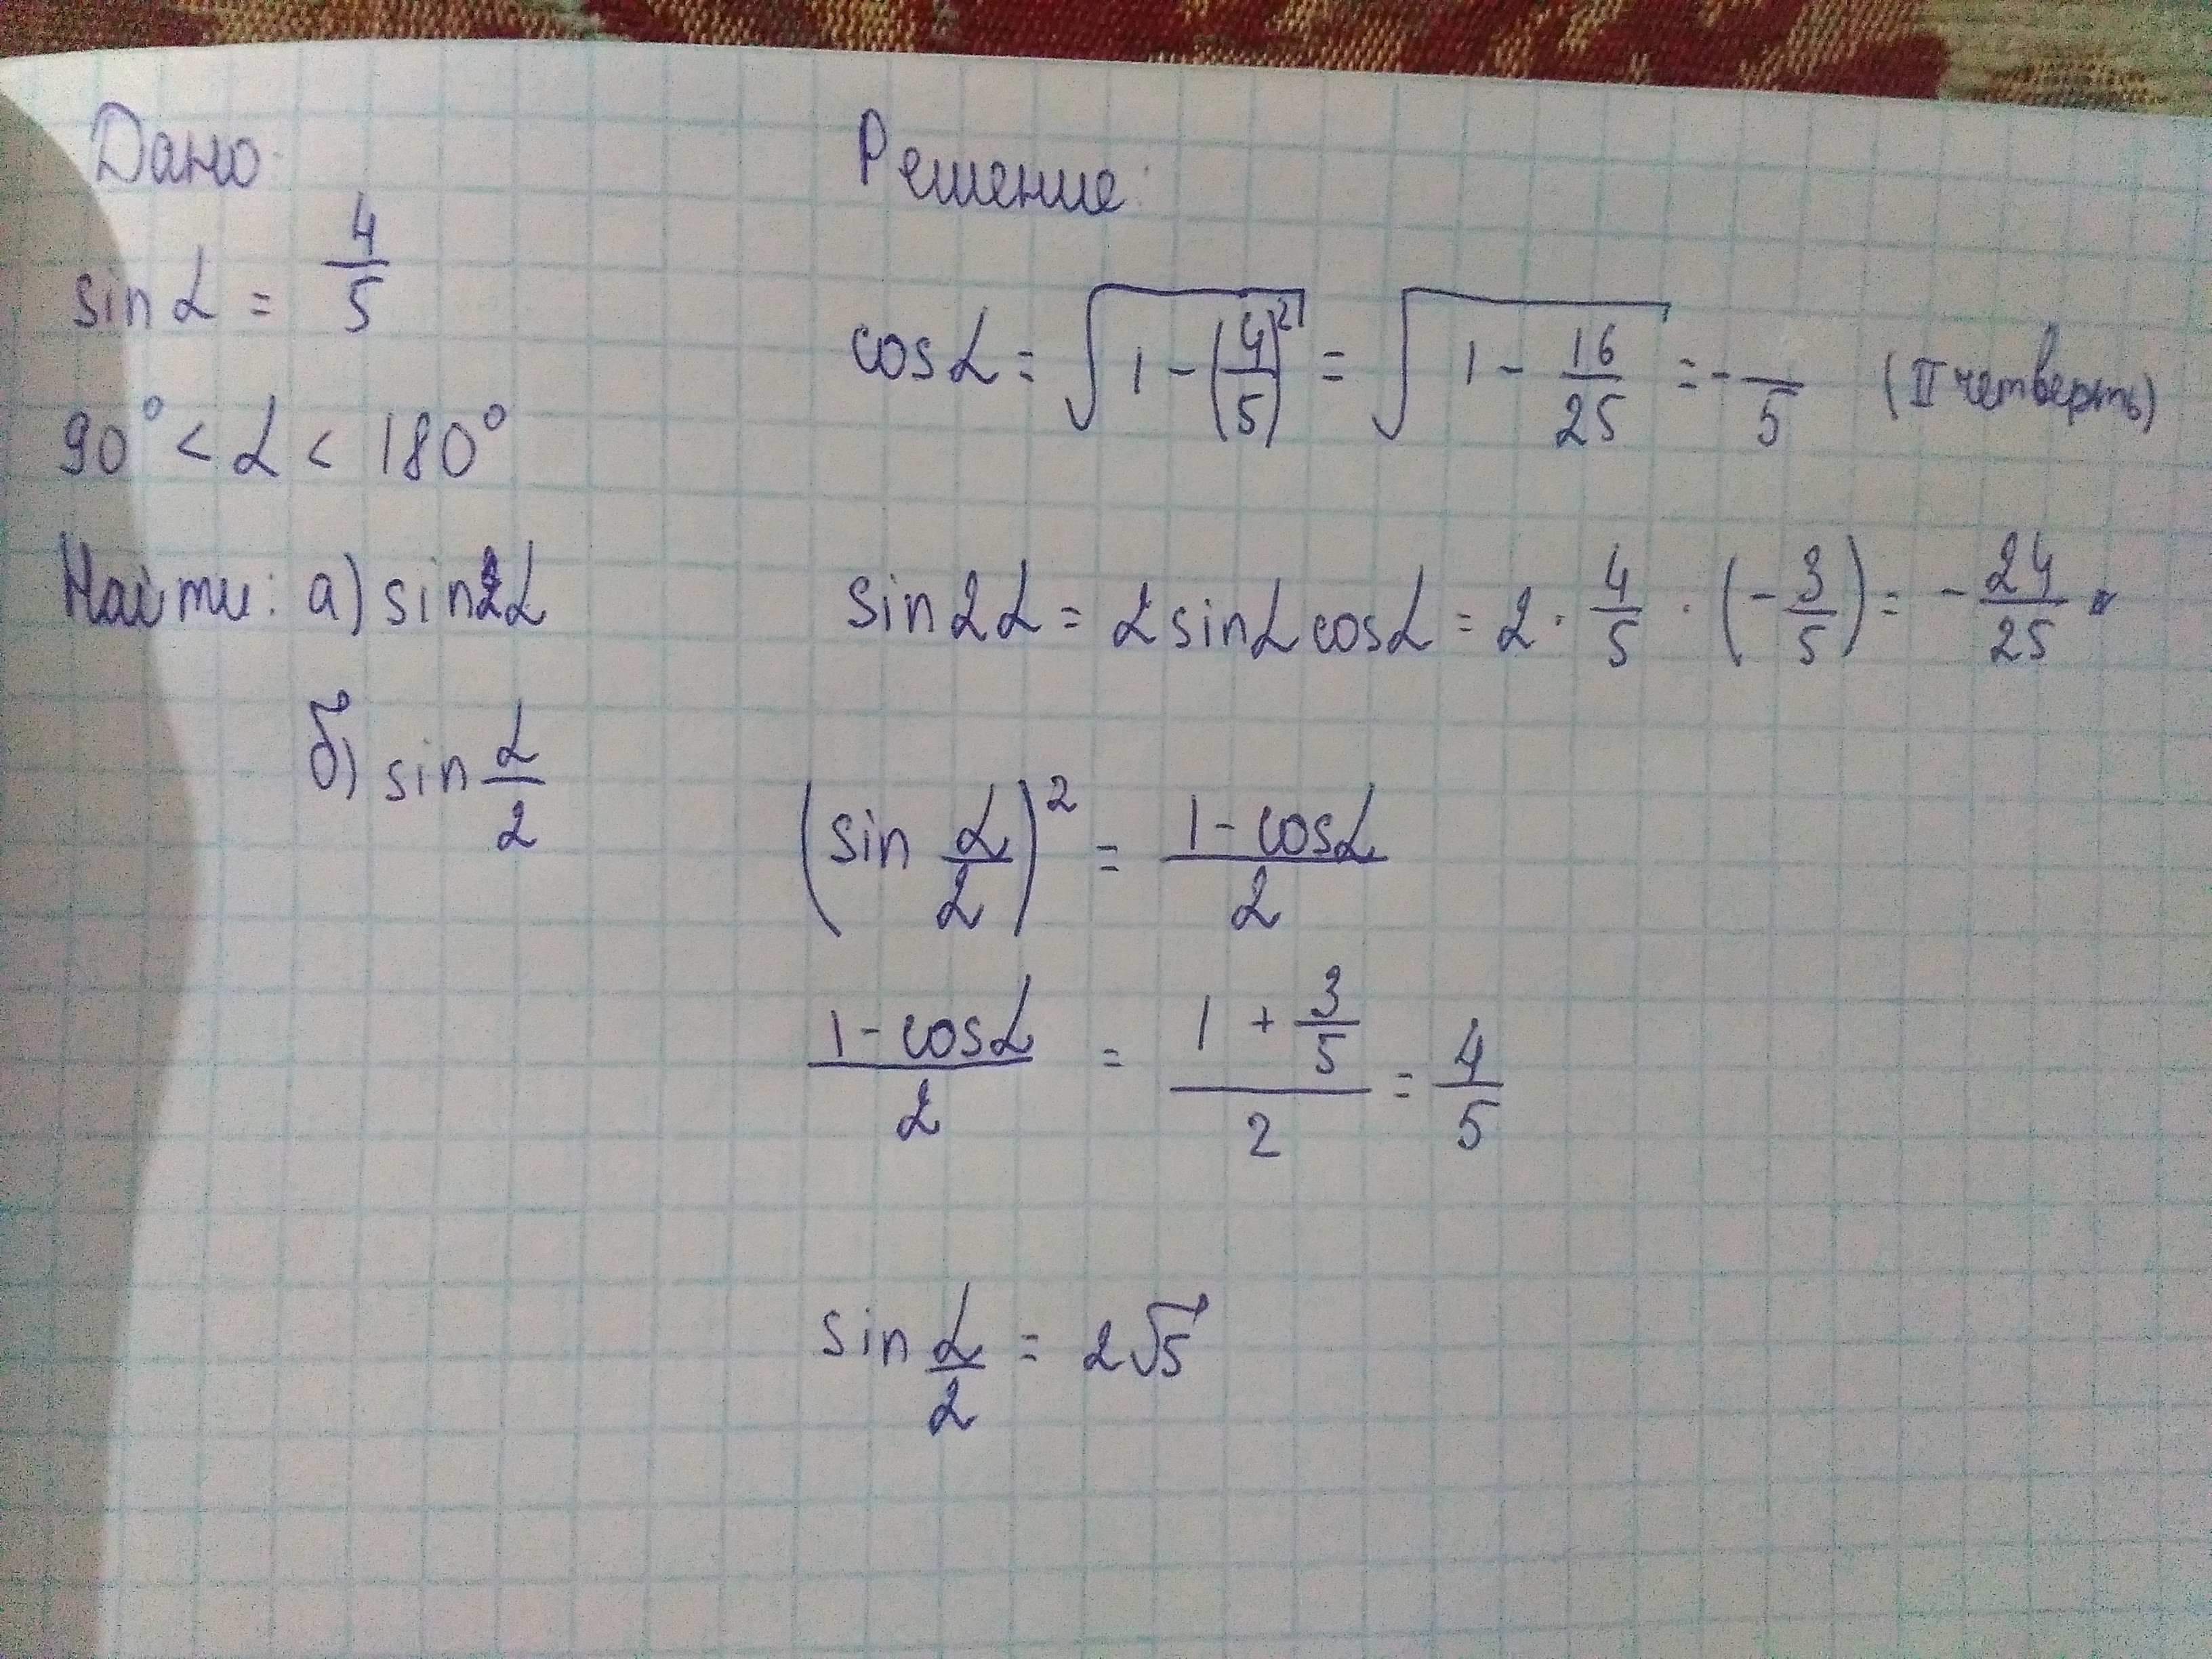 Дано:
sin α = 4/5
90° < α < 180°
Найти: а) sin2α
б) sin α/2
Решение:
cos α = √(1 - (4/5)²) = √(1 - 16/25) = - /5 (II четверть)
sin 2α = 2 sin α cos α = 2 · 4/5 · (- 3/5) = - 24/25
(sin α/2)² = (1 - cos α)/2
(1 - cos α)/2 = (1 + 3/5)/2 = 4/5
sin α/2 = 2√5